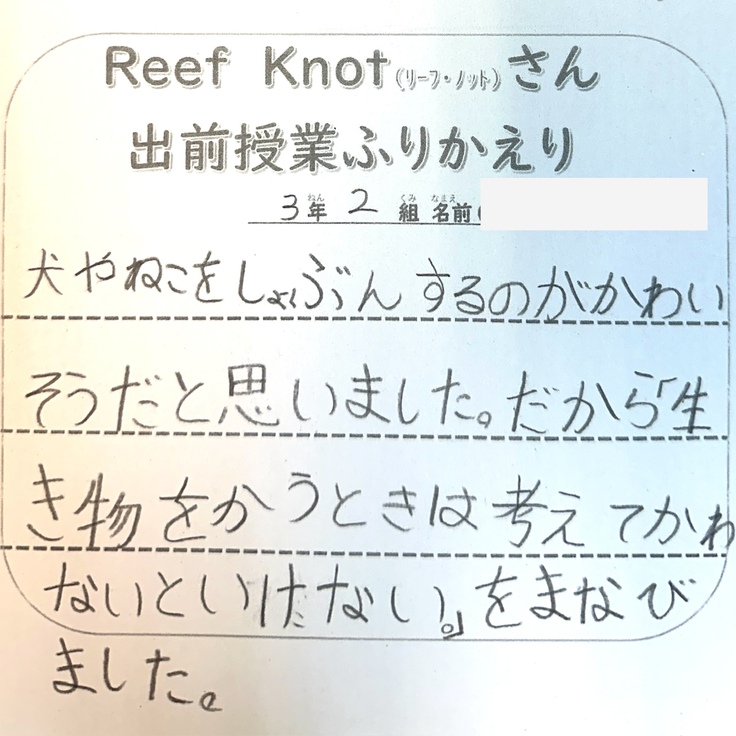 Reef Knot(リーフ・ノット)さん
出前授業ふりかえり
3年 2 組 名前(
犬やねこをしょぶんするのがかわい
そうだと思いました。だから「生
き物をかうときは考えてかわ
ないといけない。」をまなび
ました。